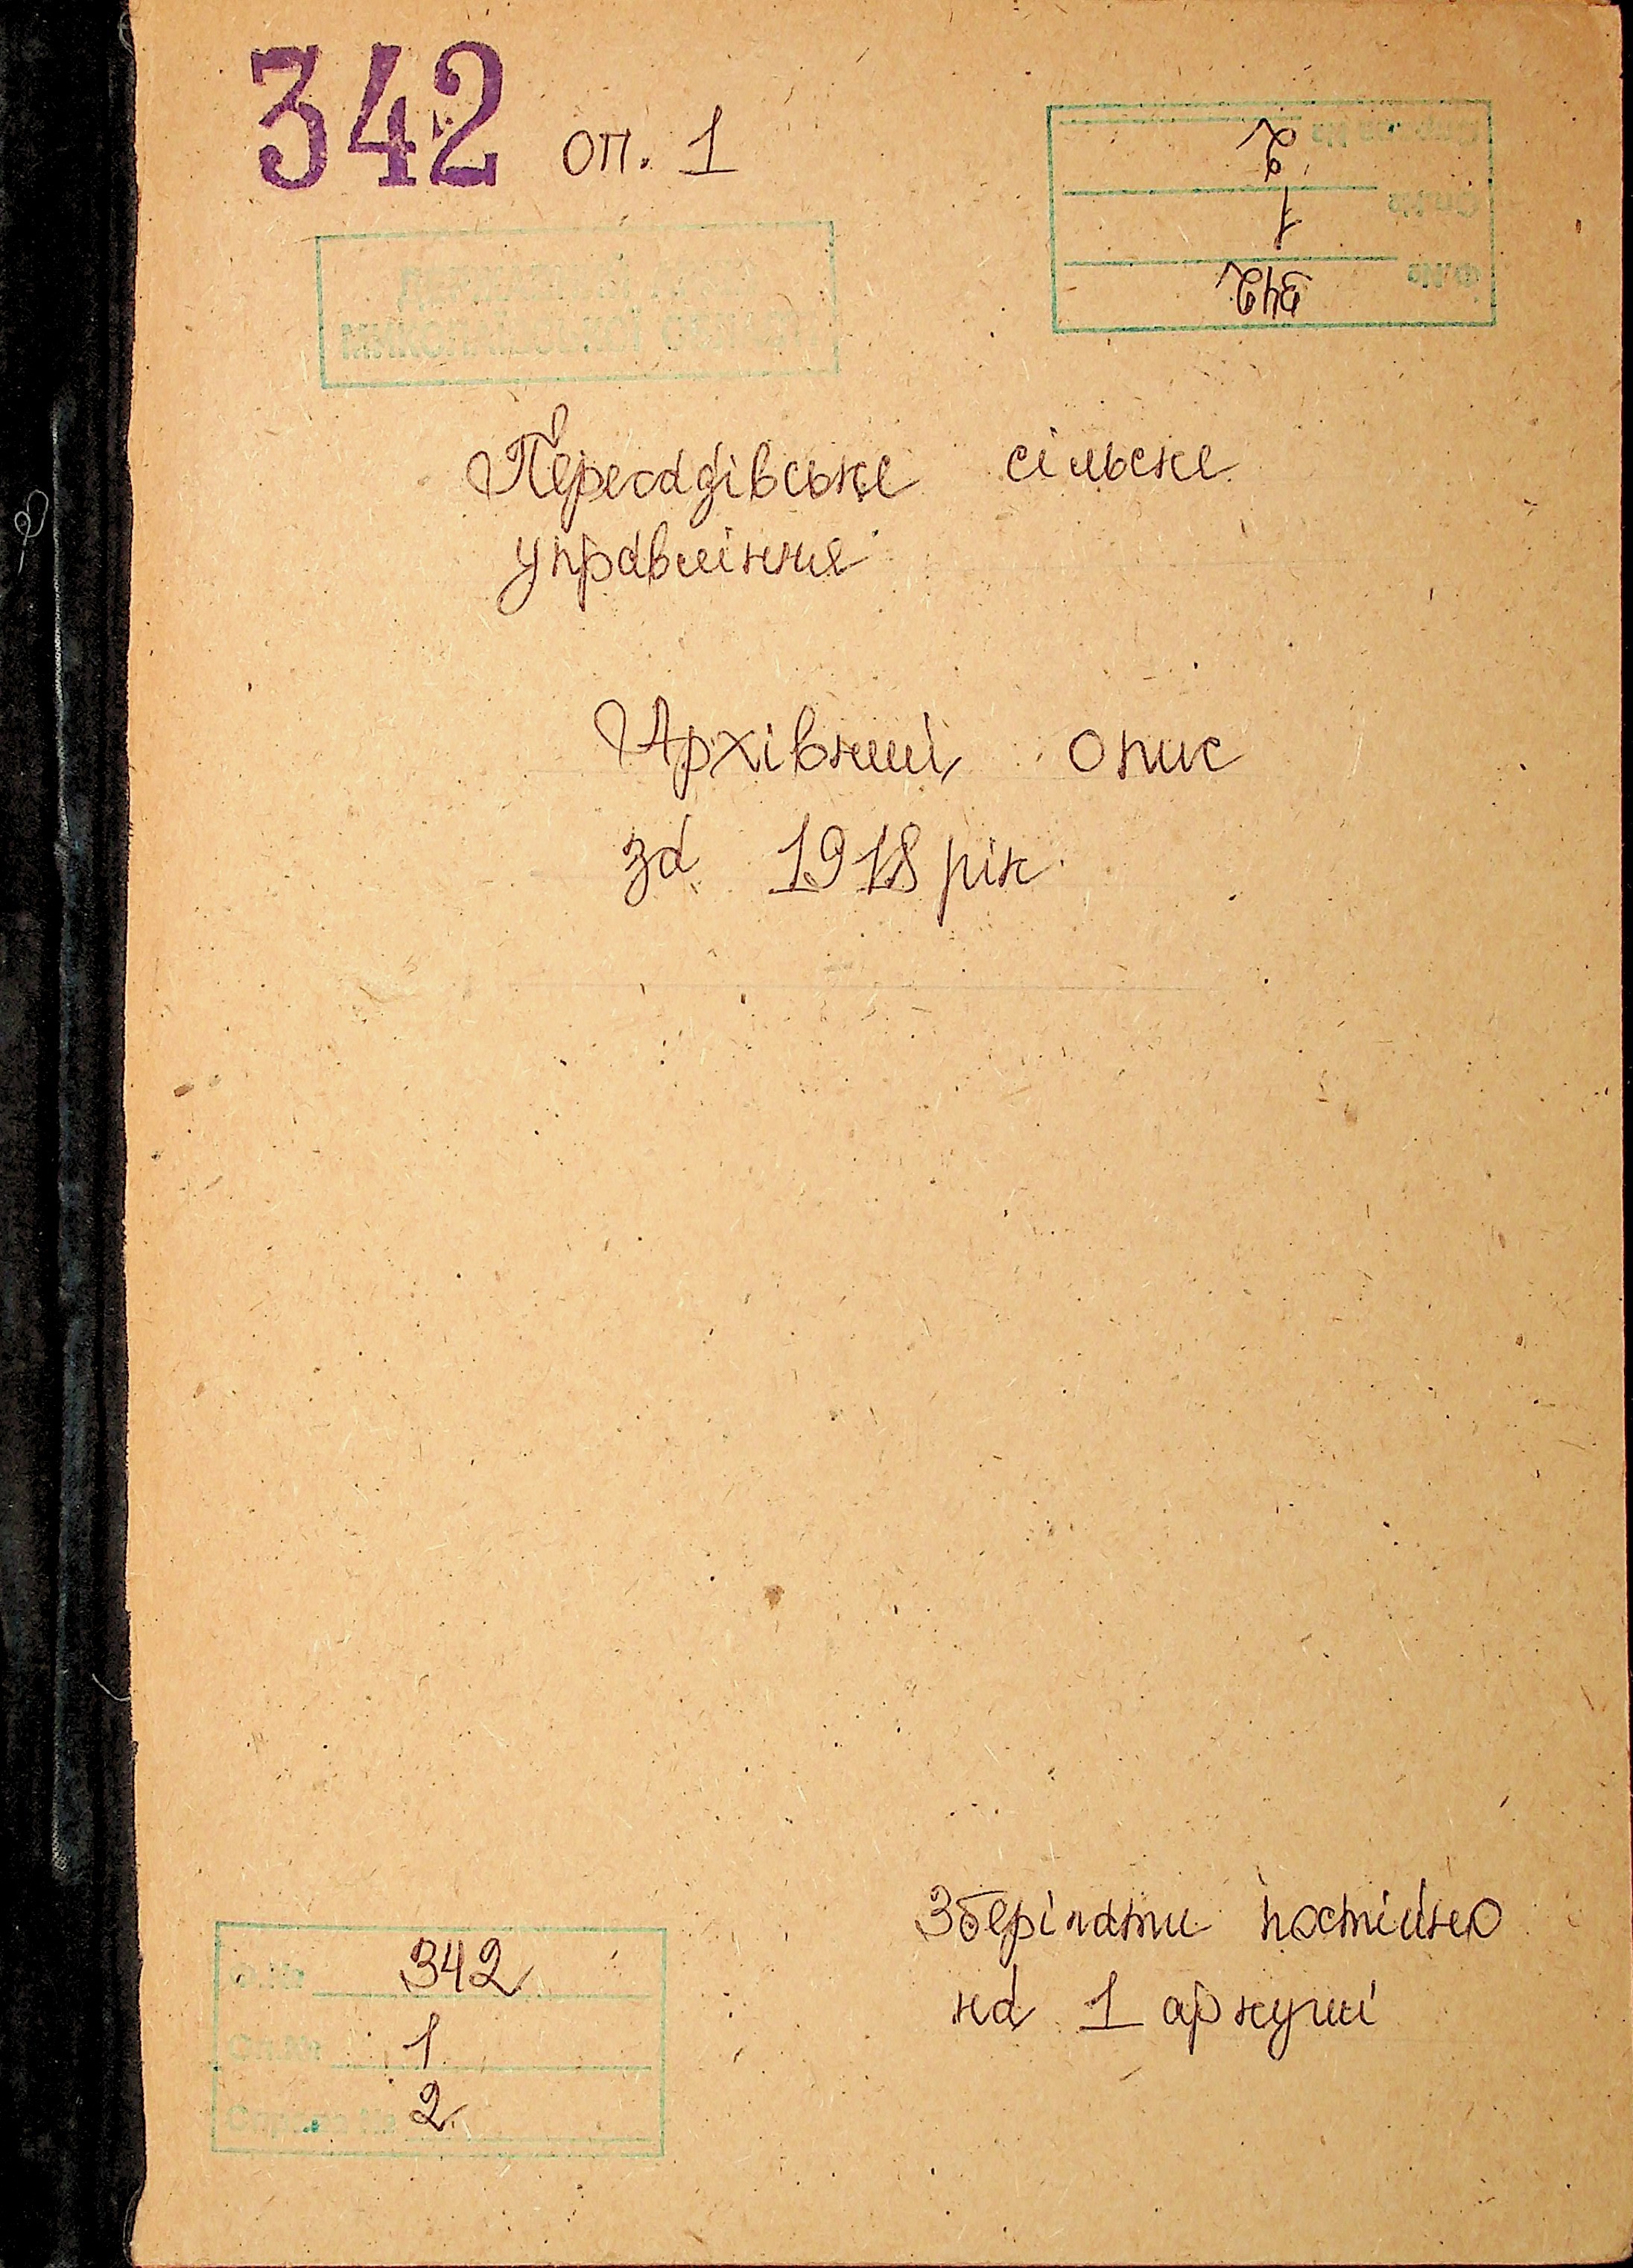 342 оп. 1
Справа № 2
Оп.№ 1
Ф.№ 342
МИКОЛАЇВСЬКОЇ ОБЛАСТІ
Пересадівське сільське
управління
Архівний опис
за 1918 рік
Зберігати постійно
на 1 аркуші
Ф.№ 342
Оп.№ 1
Справа № 2